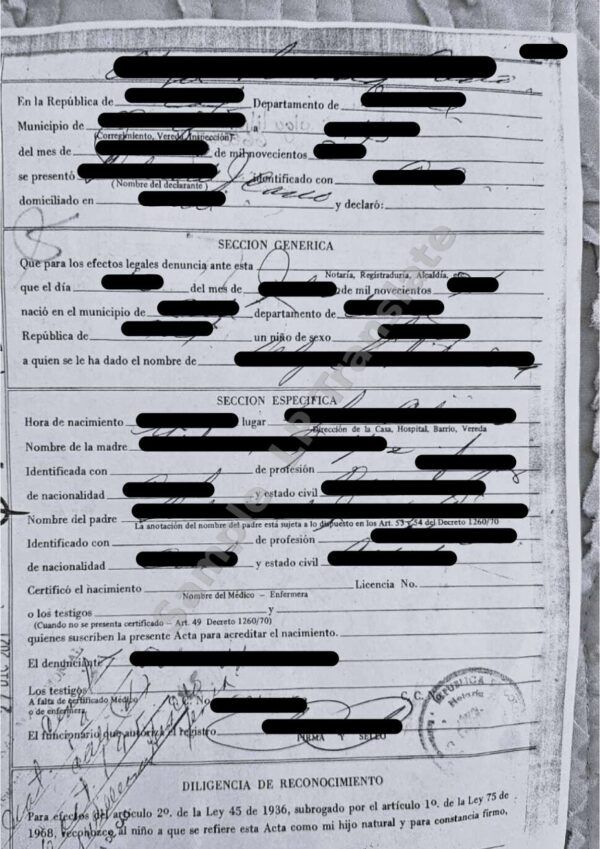 En la República de Departamento de
Municipio de a
(Corregimiento, Vereda, Inspección)
del mes de de mil novecientos
se presentó identificado con
(Nombre del declarante)
domiciliado en y declaró:
SECCION GENERICA
Que para los efectos legales denuncia ante esta
Notaría, Registraduría, Alcaldía, etc.
que el día del mes de de mil novecientos
nació en el municipio de departamento de
República de un niño de sexo
a quien se le ha dado el nombre de
SECCION ESPECIFICA
Hora de nacimiento lugar
Dirección de la Casa, Hospital, Barrio, Vereda
Nombre de la madre
Identificada con de profesión
de nacionalidad y estado civil
Nombre del padre
La anotación del nombre del padre está sujeta a lo dispuesto en los Art. 53 y 54 del Decreto 1260/70
Identificado con de profesión
de nacionalidad y estado civil
Certificó el nacimiento Licencia No.
Nombre del Médico – Enfermera
o los testigos y
(Cuando no se presenta certificado – Art. 49 Decreto 1260/70)
quienes suscriben la presente Acta para acreditar el nacimiento.
El denunciante
Los testigos C. No C. C.
A falta de certificado Médico
o de enfermera.
El funcionario que autoriza el registro
FIRMA Y SELLO
DILIGENCIA DE RECONOCIMIENTO
Para efectos del artículo 2º. de la Ley 45 de 1936, subrogado por el artículo 1º. de la Ley 75 de
1968, reconozco al niño a que se refiere esta Acta como mi hijo natural y para constancia firmo,
Sample LP Translate